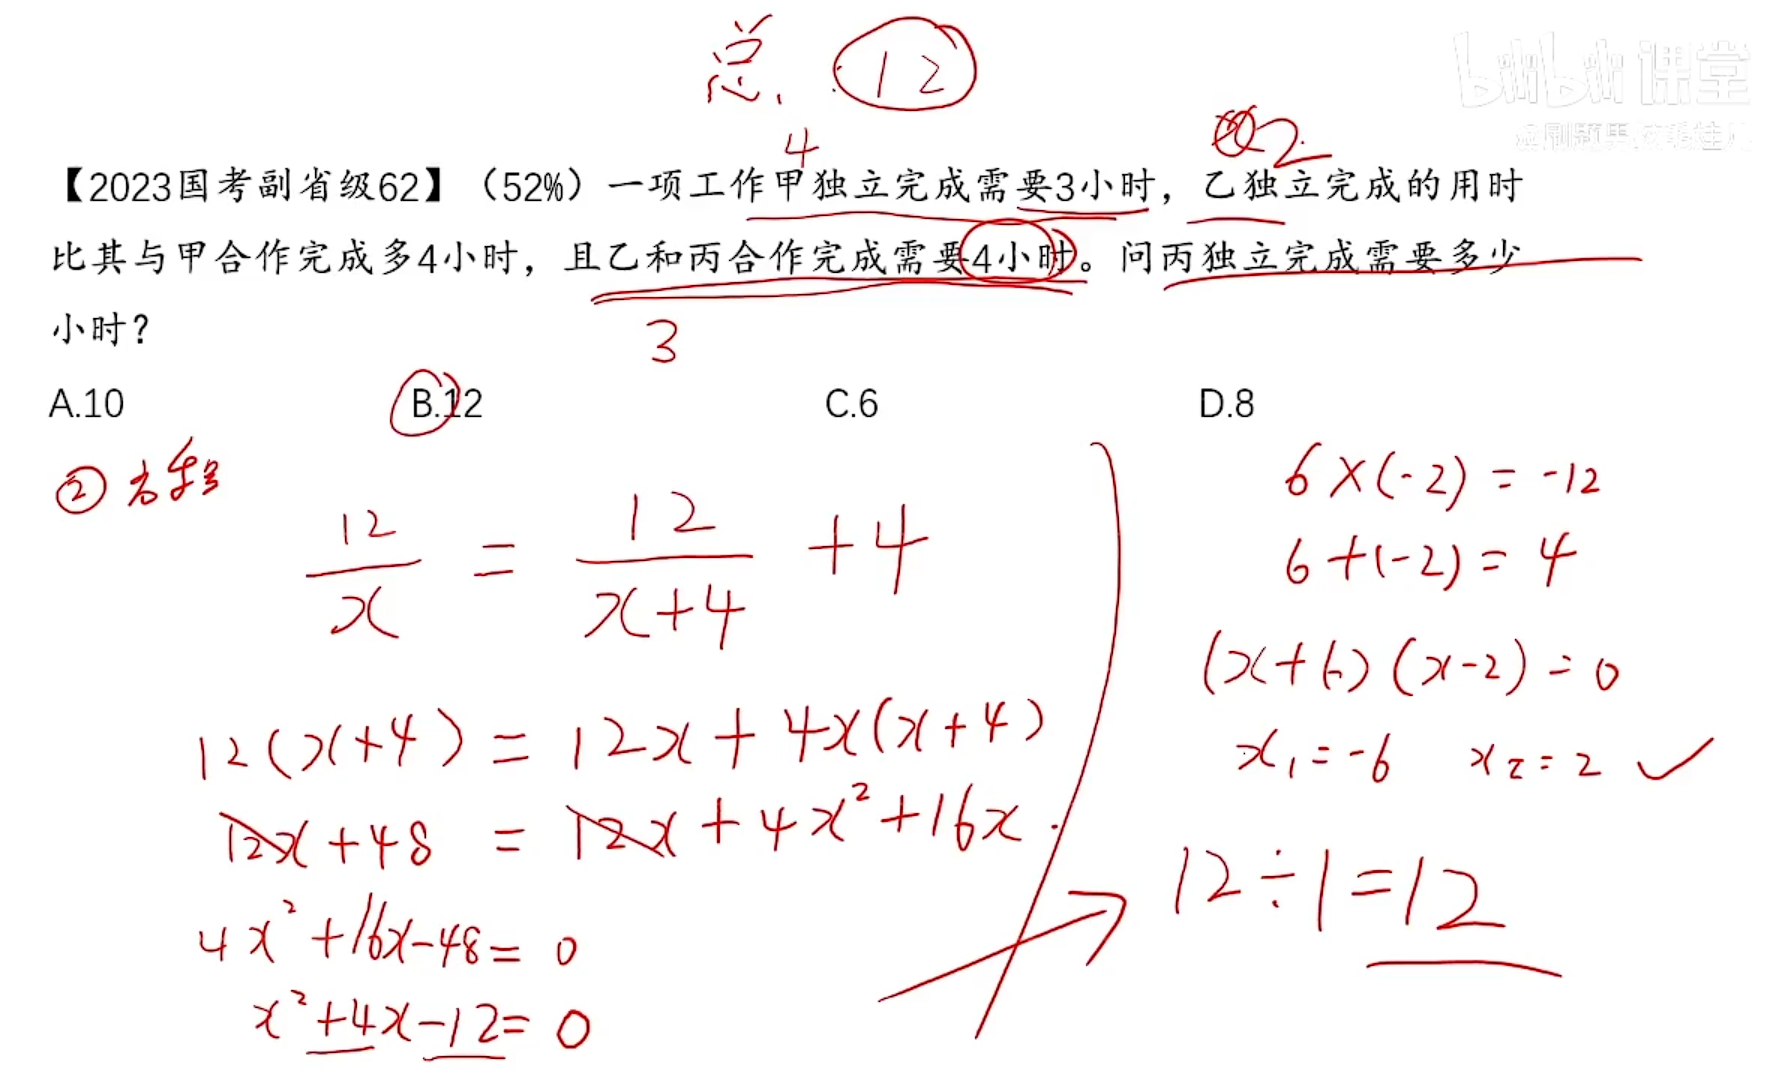 总. 12
bilibili 课堂
4
2
【2023国考副省级62】（52%）一项工作甲独立完成需要3小时，乙独立完成的用时
比其与甲合作完成多4小时，且乙和丙合作完成需要4小时。问丙独立完成需要多少
小时？
3
A.10 B.12 C.6 D.8
②
12/x = 12/(x+4) +4
12(x+4) = 12x+4x(x+4)
12x+48 = 12x+4x²+16x
4x²+16x-48=0
x²+4x-12=0
6×(-2)=-12
6+(-2)=4
(x+6)(x-2)=0
x₁=-6 x₂=2 ✓
12÷1=12